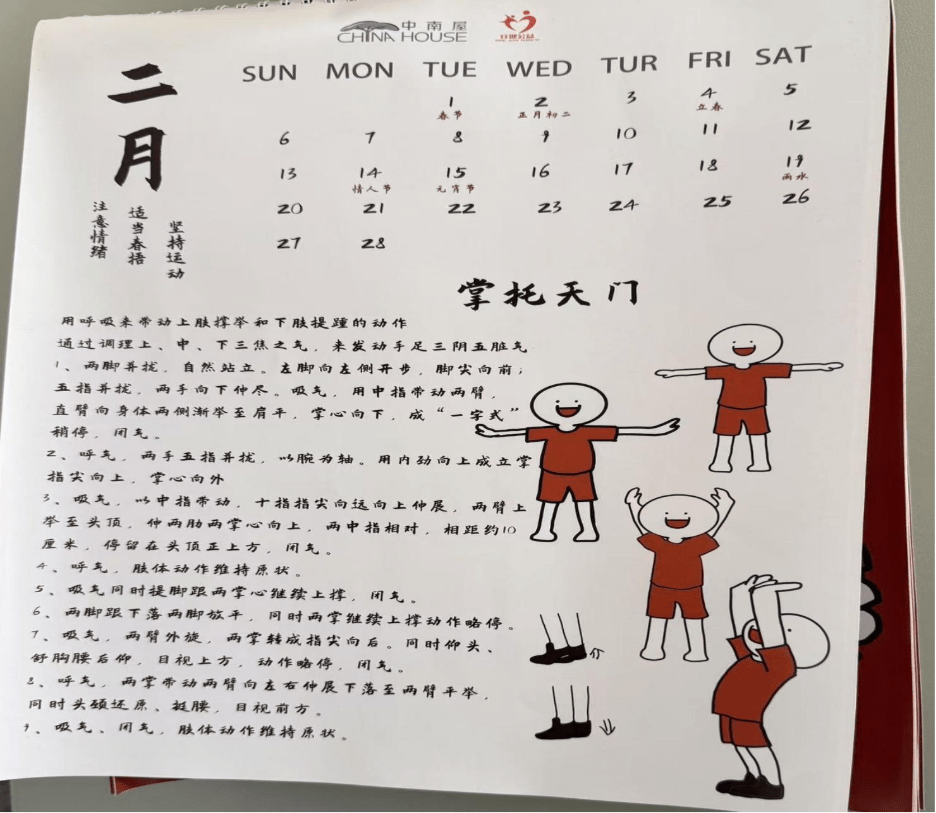 中南屋
CHINA HOUSE
二月
SUN MON TUE WED TUR FRI SAT
1 2 3 4 5
春节 正月初二 立春
6 7 8 9 10 11 12
13 14 15 16 17 18 19
情人节 元宵节 雨水
20 21 22 23 24 25 26
27 28
注意情绪
适当春捂
坚持运动
掌托天门
用呼吸来带动上肢撑举和下肢提踵的动作
通过调理上、中、下三焦之气，来发动手足三阴五脏气
1、两脚并拢，自然站立。左脚向左侧开步，脚尖向前；
五指并拢，两手向下伸尽。吸气，用中指带动两臂，
直臂向身体两侧渐举至肩平，掌心向下，成“一字式”
稍停，闭气。
2、呼气，两手五指并拢，以腕为轴。用内劲向上成立掌
指尖向上，掌心向外
3、吸气，以中指带动，十指指尖向远向上伸展，两臂上
举至头顶，伸两肋两掌心向上，两中指相对，相距约10
厘米，停留在头顶正上方，闭气。
4、呼气，肢体动作维持原状。
5、吸气同时提脚跟两掌心继续上撑，闭气。
6、两脚跟下落两脚放平，同时两掌继续上撑动作略停。
7、吸气，两臂外旋，两掌转成指尖向后。同时仰头、
舒胸腰后仰，目视上方，动作略停，闭气。
8、呼气，两掌带动两臂向左右伸展下落至两臂平举，
同时头颈还原、挺腰，目视前方。
9、吸气、闭气，肢体动作维持原状。